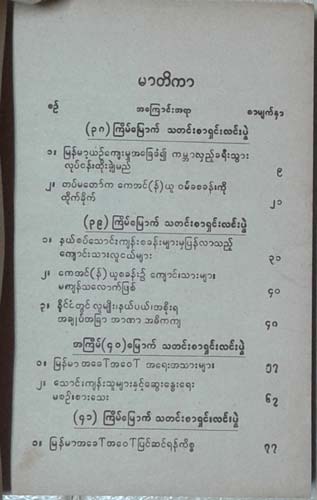 မာတိကာ
စဉ် အကြောင်းအရာ စာမျက်နှာ
(၃၈) ကြိမ်မြောက် သတင်းစာရှင်းလင်းပွဲ
၁။ မြန်မာ့ယဉ်ကျေးမှုအခြေခံ၍ ကမ္ဘာလှည့်ခရီးသွား
လုပ်ငန်းတိုးချဲ့မည် ၉
၂။ တပ်မတော်က ကေအင်(န်)ယူ ဝမ်ခစခန်းကို
တိုက်ခိုက် ၂၁
(၃၉) ကြိမ်မြောက် သတင်းစာရှင်းလင်းပွဲ
၁။ နယ်စပ်သောင်းကျန်းစခန်းများမှပြန်လာသည့်
ကျောင်းသားလူငယ်များ ၃၁
၂။ ကေအင်(န်)ယူစခန်း၌ ကျောင်းသားများ
မကျန်သလောက်ဖြစ် ၄၀
၃။ နိုင်ငံတွင် လူမျိုး၊ နယ်ပယ်၊ အစိုးရ
အချုပ်အခြာ အာဏာ အဓိကကျ ၄၈
အကြိမ်(၄၀)မြောက် သတင်းစာရှင်းလင်းပွဲ
၁။ မြန်မာ အခေါ်အဝေါ် အရေးအသားများ ၅၇
၂။ သောင်းကျန်းသူများနှင့်ဆွေးနွေးရေး
မစဉ်းစားသေး ၆၄
(၄၁) ကြိမ်မြောက် သတင်းစာရှင်းလင်းပွဲ
၁။ မြန်မာအခေါ်အဝေါ်ပြင်ဆင်ရန်ကိစ္စ ၇၇